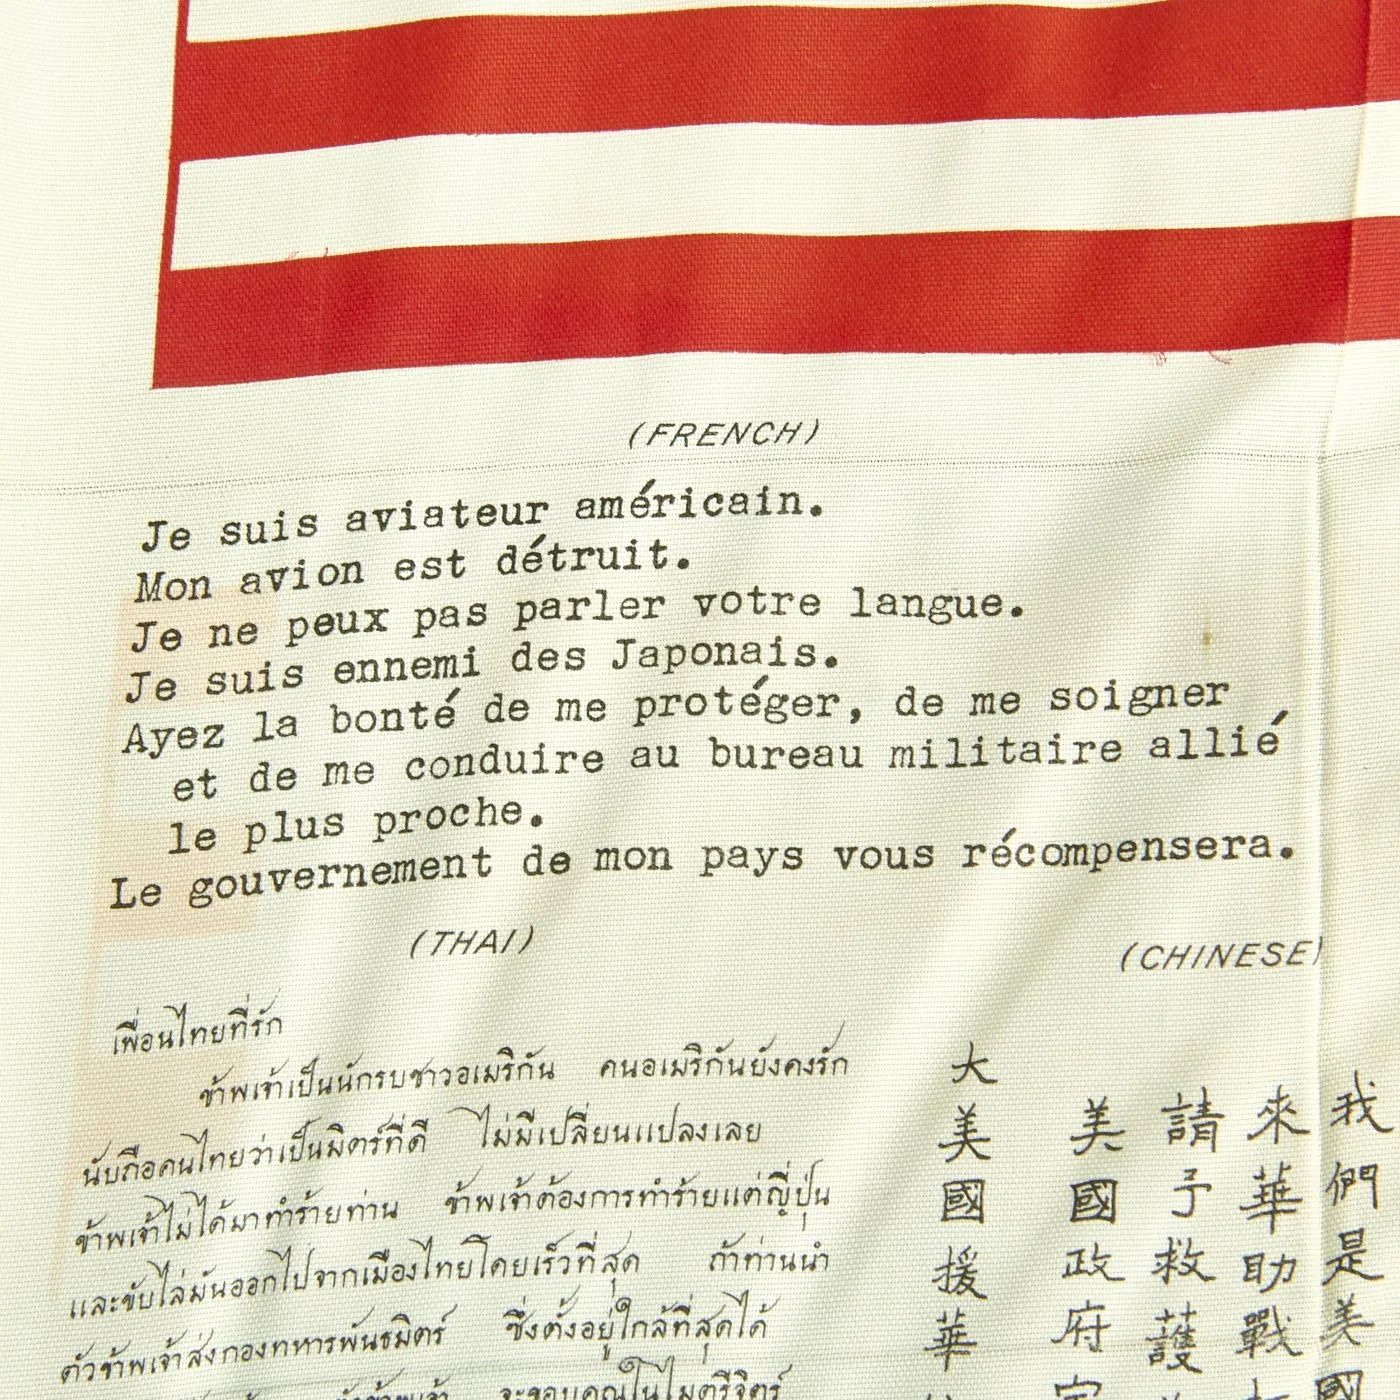 (FRENCH)
Je suis aviateur américain.
Mon avion est détruit.
Je ne peux pas parler votre langue.
Je suis ennemi des Japonais.
Ayez la bonté de me protéger, de me soigner
et de me conduire au bureau militaire allié
le plus proche.
Le gouvernement de mon pays vous récompensera.
(THAI)
เพื่อนไทยที่รัก
ข้าพเจ้าเป็นนักรบชาวอเมริกัน คนอเมริกันยังคงรัก
นับถือคนไทยว่าเป็นมิตร์ที่ดี ไม่มีเปลี่ยนแปลงเลย
ข้าพเจ้าไม่ได้มาทำร้ายท่าน ข้าพเจ้าต้องการทำร้ายแต่ญี่ปุ่น
และขับไล่มันออกไปจากเมืองไทยโดยเร็วที่สุด ถ้าท่านนำ
ตัวข้าพเจ้าส่งกองทหารพันธมิตร์ ซึ่งตั้งอยู่ใกล้ที่สุดได้
จะขอบคุณในไมตรีจิตร์
(CHINESE)
我們是美國
來華助戰
請予救護
美國政府
大美國援華